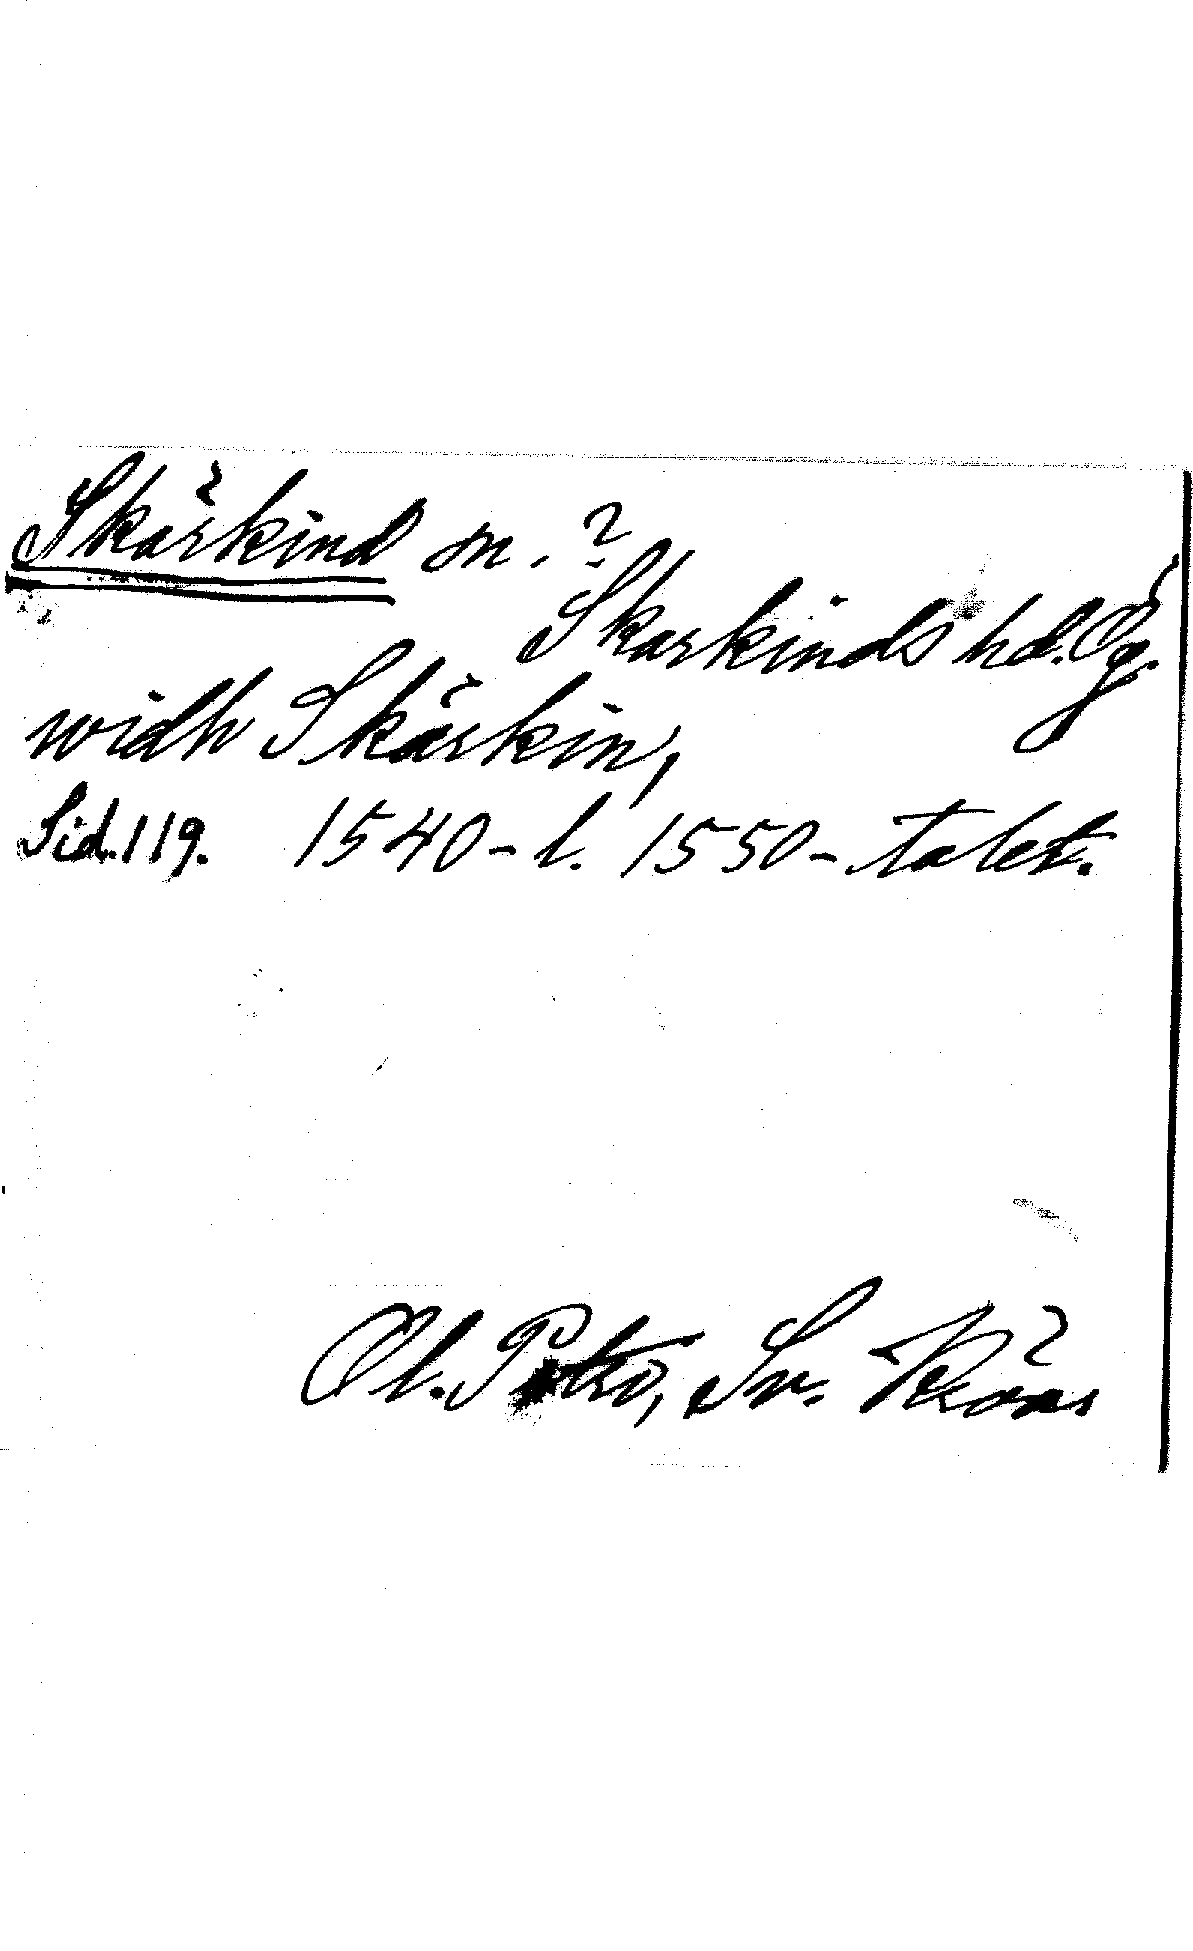 Skärkind sn.?
Skärkinds hd. Ög.
widh Skärkin,
Sid. 119. 1540- l. 1550-talet.
Ol. Petro, Sv. Krön